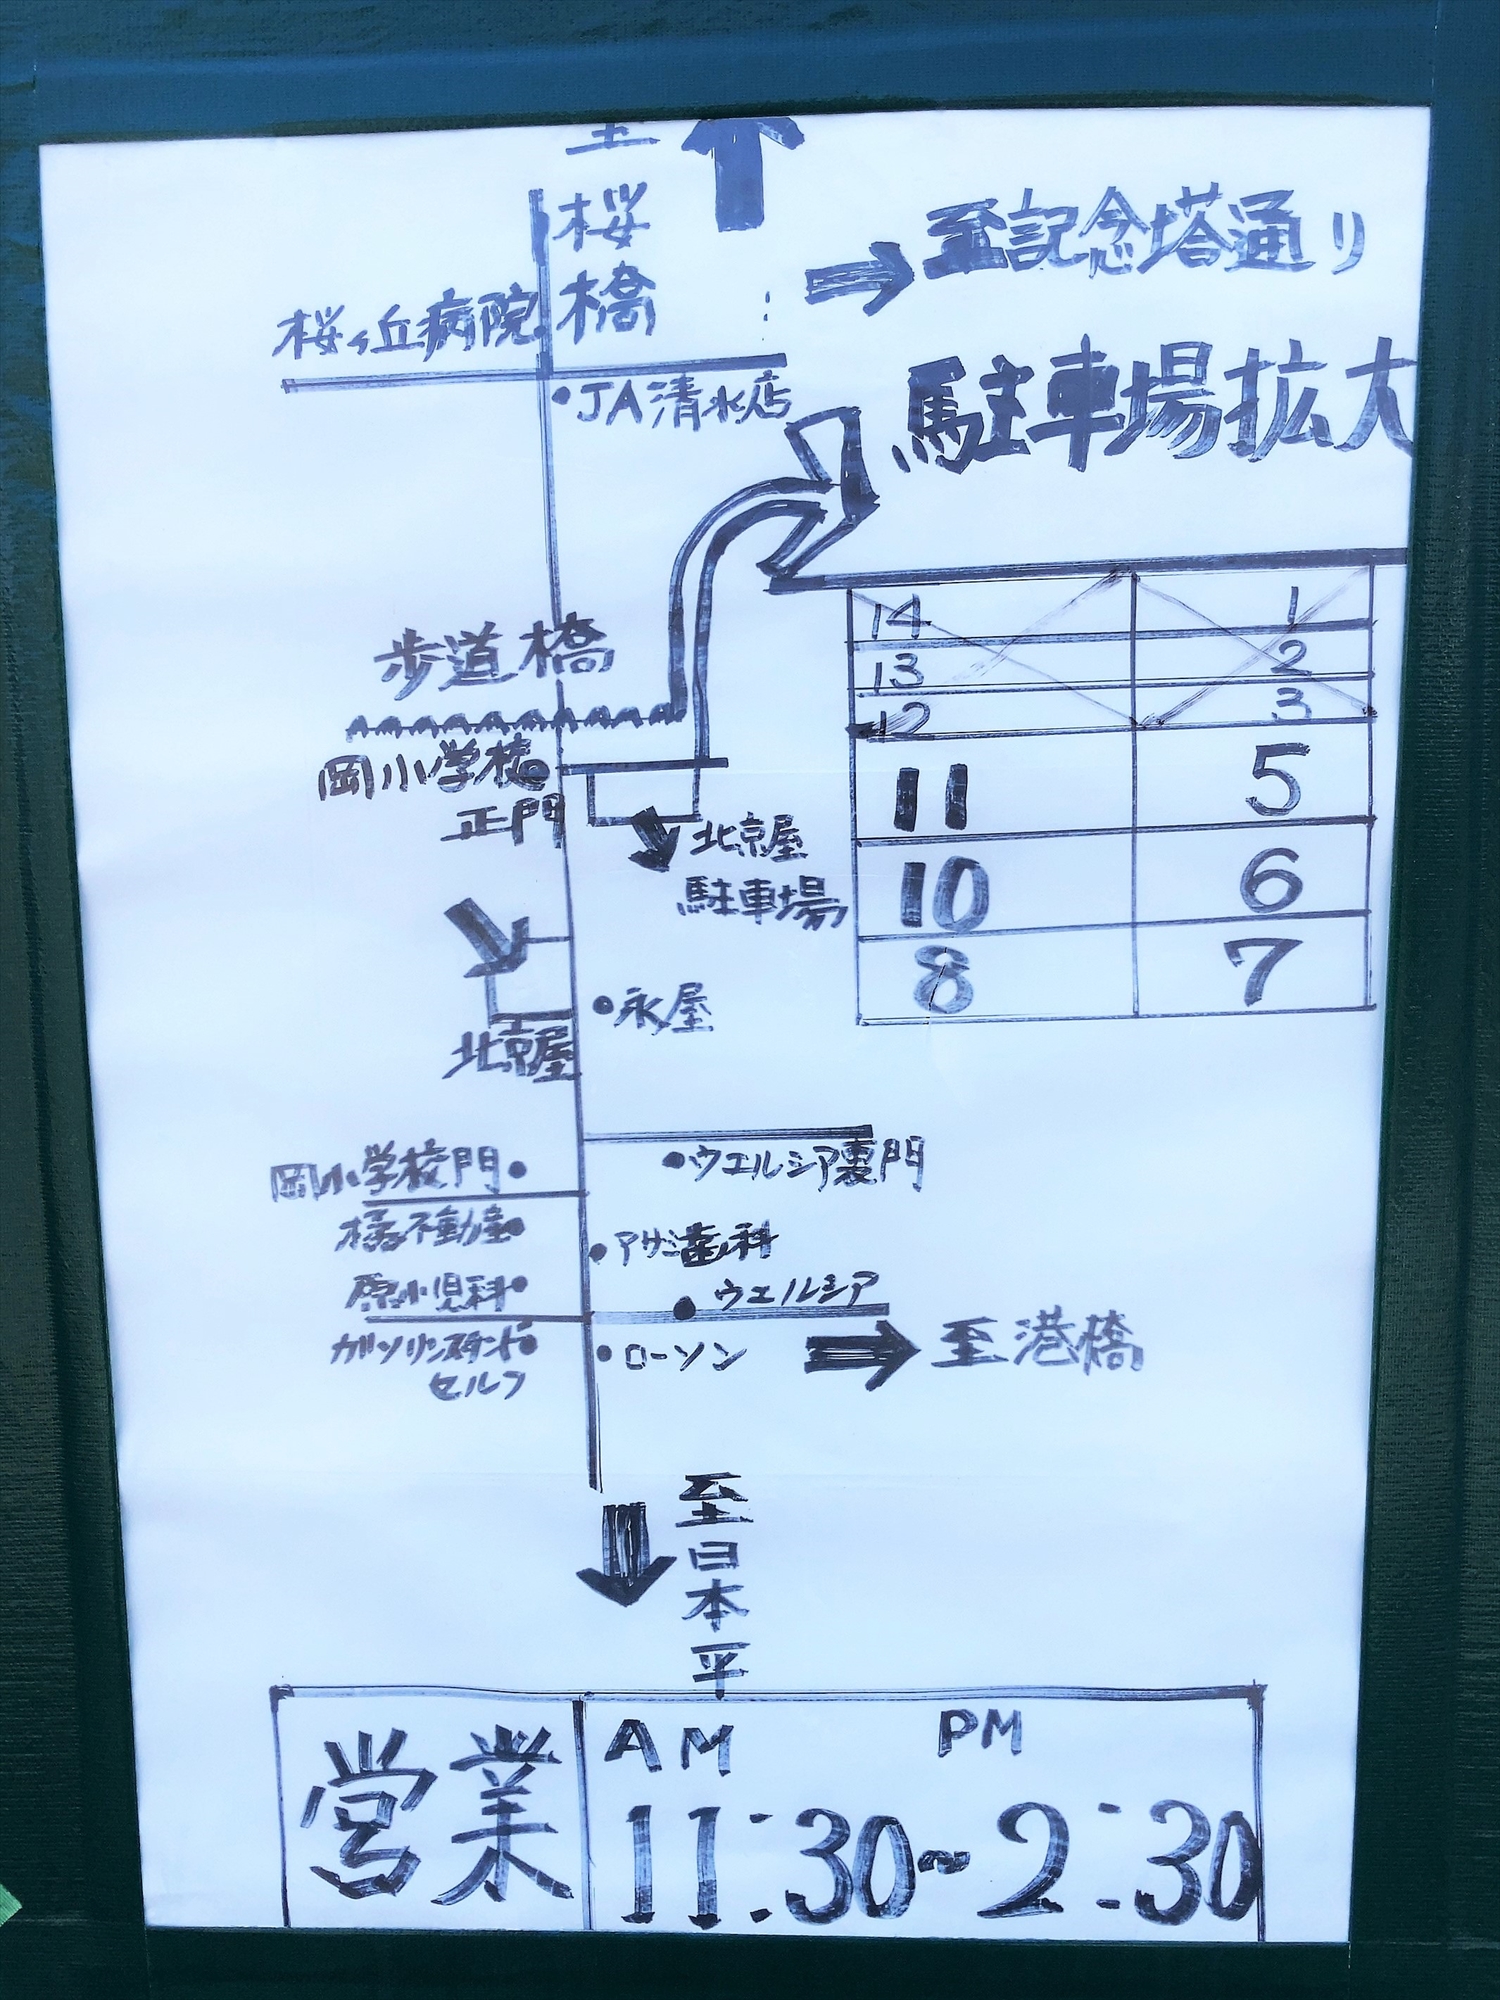 至
桜橋
至記念塔通り
桜ヶ丘病院
JA清水店
駐車場拡大
14
1
13
2
12
3
11
5
10
6
8
7
歩道橋
岡小学校
正門
北京屋
駐車場
永屋
北京屋
岡小学校門
ウエルシア裏門
不動産
アサミ歯科
原小児科
ウエルシア
ガソリンスタンド
セルフ
ローソン
至港橋
至日本平
営業
AM PM
11:30~2:30